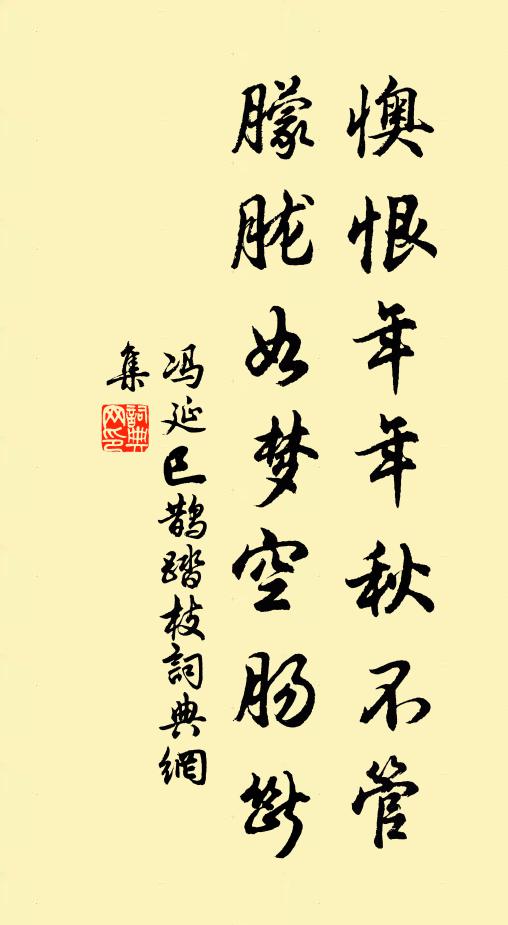 懊恨年年秋不管
朦胧如梦空肠断
冯延巳鹊踏枝詞典網
集
詞典
网印